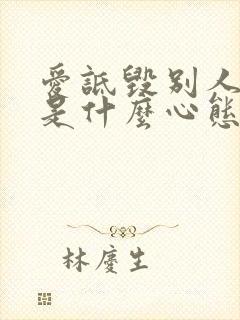 愛詆毀別人
是什麼心態
林慶生